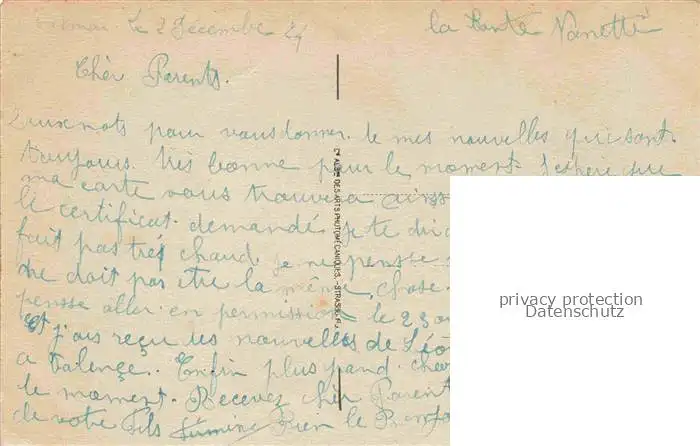 le 2 Décembre 24
la tante Nanette
Chèr Parents.
Deux mots pour vous donner de mes nouvelles qui sont
toujours très bonne pour le moment J'espère que
ma carte vous trouvera ainsi
le certificat demandé je te dirai
fait pas très chaud je ne pensse
ne doit pas être la même chose.
pensse aller en permission le 23 ou
et j'ais reçu des nouvelles de Léo
a Valençe. Enfin plus grand chose
le moment. Recevez chèr Parent
de votre Fils Firmine Rien le
Cie ALSCE DES ARTS PHOTOMÉCANIQUES. - STRASBG.
privacy protection
Datenschutz